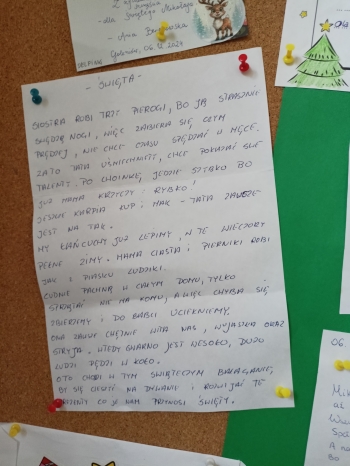 dla Świętego Mikołaja
- Ania
06.12.2024
- ŚWIĘTA -
SIOSTRA ROBI TRZY PIEROGI, BO JĄ STRASZNIE
SWĘDZĄ NOGI, WIĘC ZABIERA SIĘ CZYM
PRĘDZEJ, NIE CHCE CZASU SPĘDZAĆ W MĘCE.
ZA TO TATA UŚMIECHNIĘTY, CHCE POKAZAĆ SWE
TALENTY. PO CHOINKĘ JEDZIE SZYBKO BO
JUŻ MAMA KRZYCZY: RYBKO!
JESZCZE KARPIA KUP I MAK - TATA ZAWSZE
JEST NA TAK.
MY ŁAŃCUCHY JUŻ LEPIMY, W TE WIECZORY
PEŁNE ZIMY. MAMA CIASTA I PIERNIKI ROBI
JAK Z PIASKU LUDZIKI.
CUDNIE PACHNĄ W CAŁYM DOMU, TYLKO
SPRZĄTAĆ NIE MA KOMU, A WIĘC CHYBA SIĘ
ZBIERZEMY I DO BABCI UCIEKNIEMY.
ONA ZAWSZE CHĘTNIE WITA NAS, WUJASZKA ORAZ
STRYJA. WTEDY GWARNO JEST WESOŁO, DUŻO
LUDZI PĘDZI W KOŁO.
OTO CHODZI W TYM ŚWIĄTECZNYM BAŁAGANIE,
BY SIĘ CIESZYĆ NA DYWANIE I ROZWIJAĆ TE
CO JE NAM PRZYNOSI ŚWIĘTY.
06.